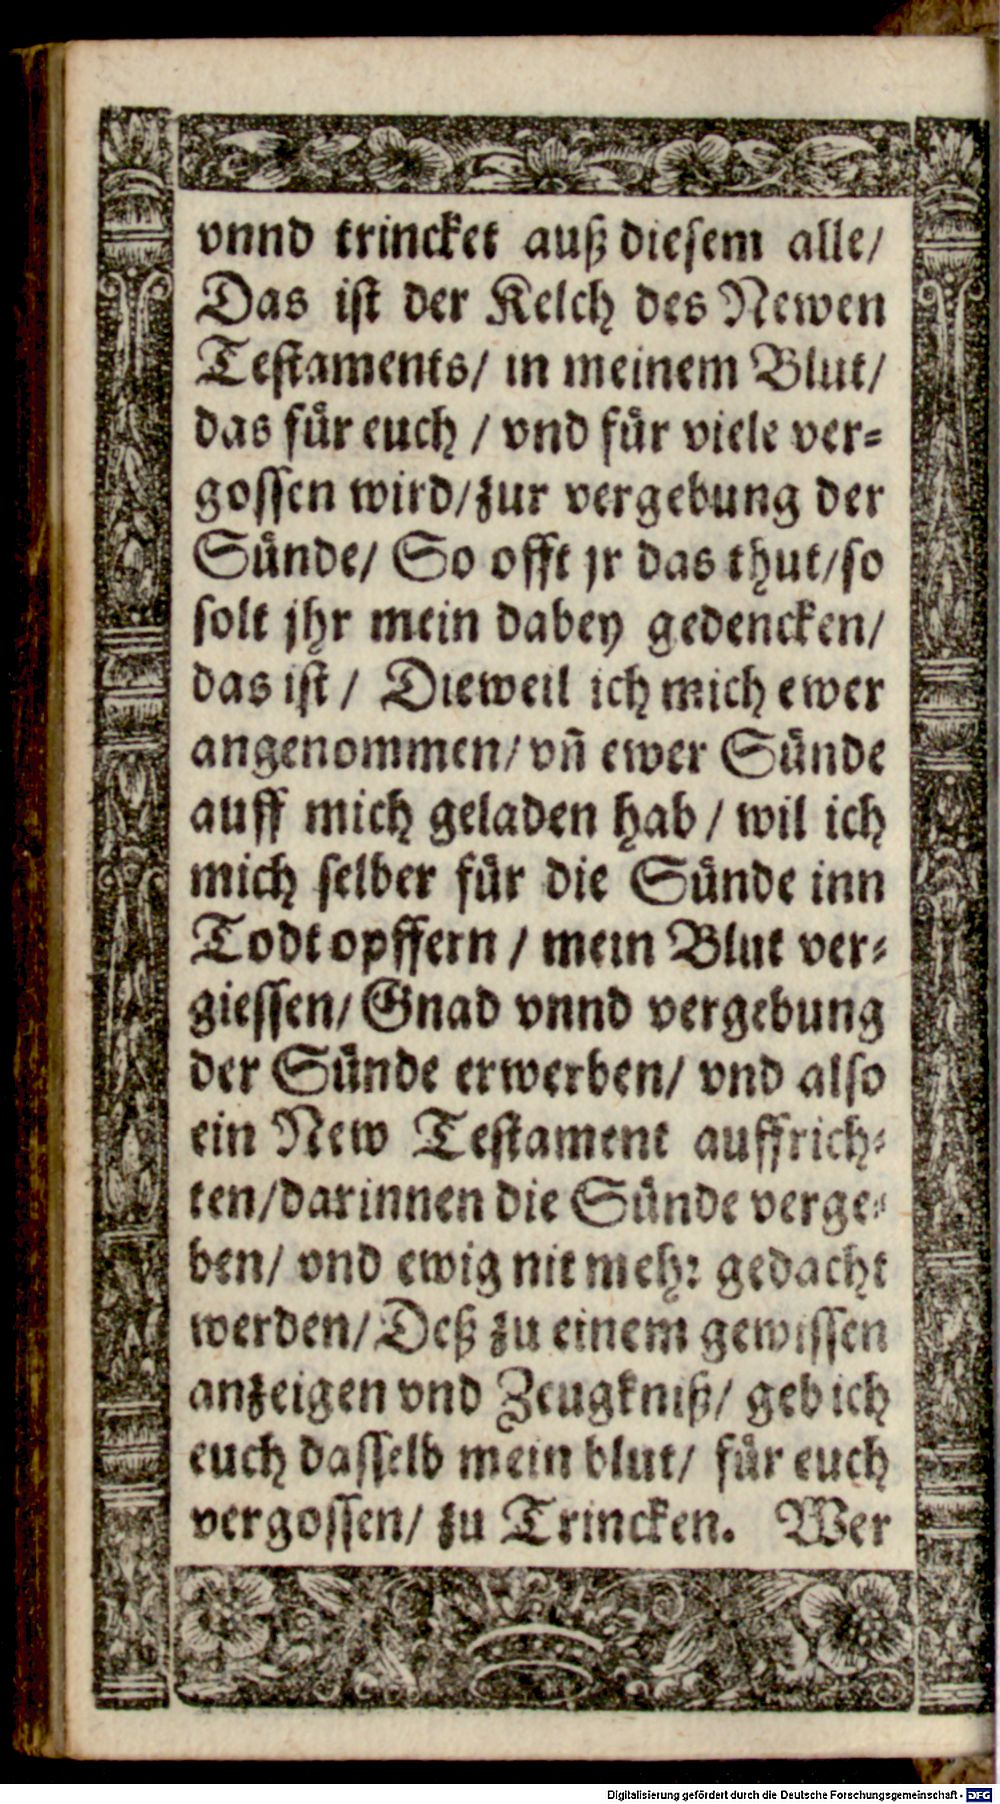 vnnd trincket auß diesem alle/
Das ist der Kelch des Newen
Testaments/ in meinem Blut/
das fuͤr euch / vnd fuͤr viele ver-
gossen wird/zur vergebung der
Suͤnde/ So offt jr das thut/so
solt jhr mein dabey gedencken/
das ist / Dieweil ich mich ewer
angenommen/vñ ewer Suͤnde
auff mich geladen hab / wil ich
mich selber fuͤr die Suͤnde inn
Todt opffern / mein Blut ver-
giessen/ Gnad vnnd vergebung
der Suͤnde erwerben/ vnd also
ein New Testament auffrich-
ten/darinnen die Suͤnde verge-
ben/ vnd ewig nit mehr gedacht
werden/Deß zu einem gewissen
anzeigen vnd Zeugkniß/ geb ich
euch dasselb mein blut/ fuͤr euch
vergossen/ zu Trincken. Wer
Digitalisierung gefördert durch die Deutsche Forschungsgemeinschaft - DFG